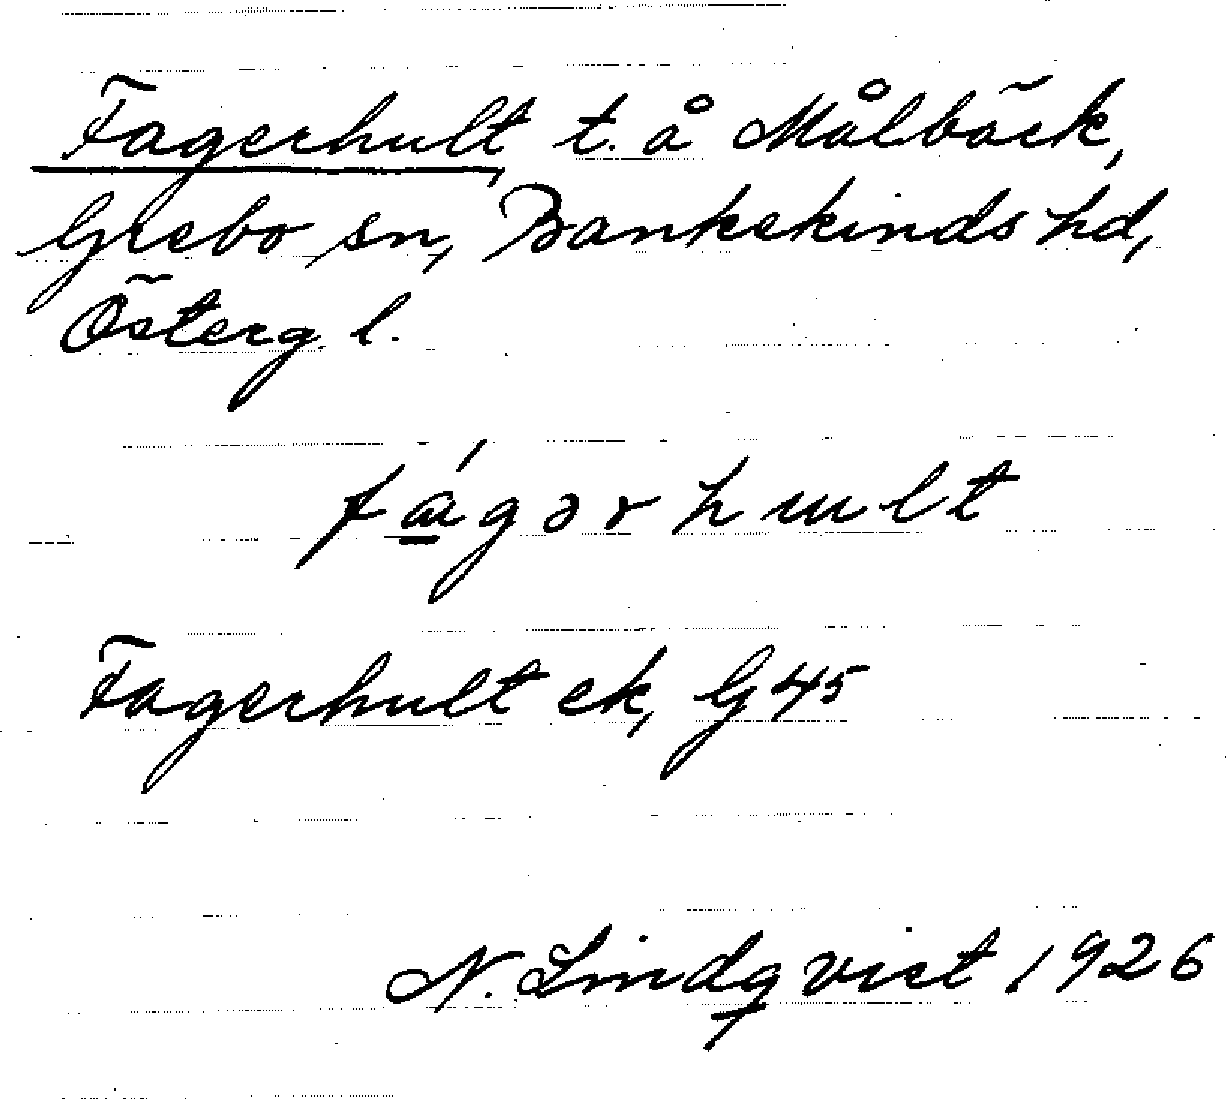 Fagerhult, t. å Målbäck,
Grebo sn, Bankekinds hd,
Österg. l.
fágərhult
Fagerhult ek, G 45
N. Lindqvist 1926